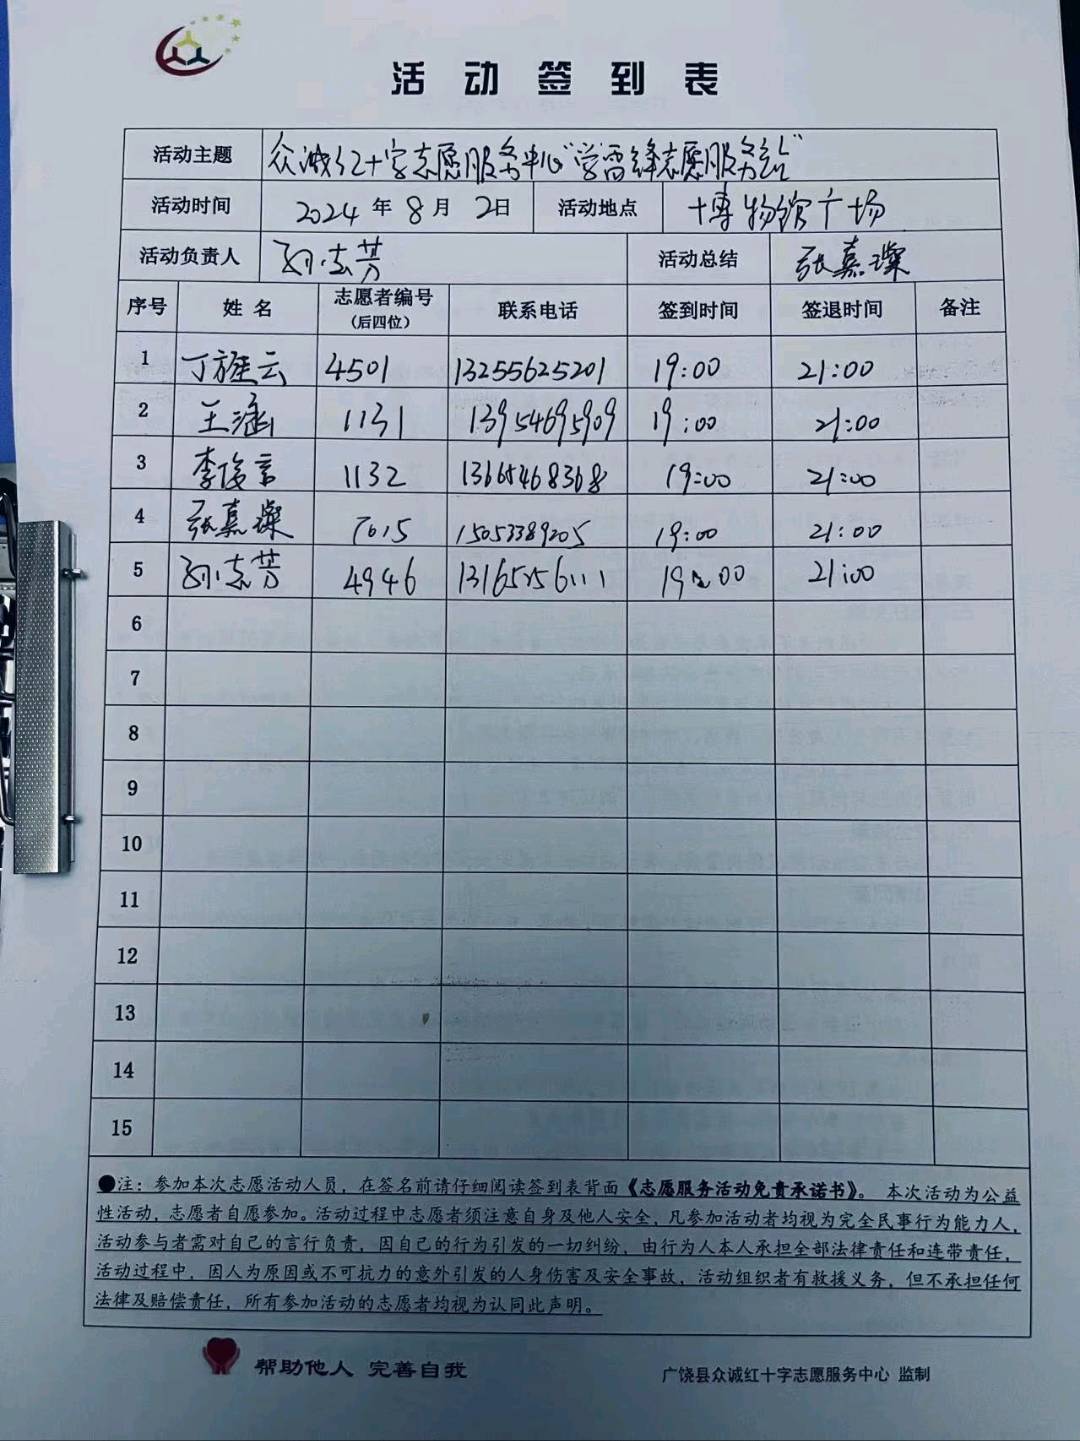 活动签到表
活动主题 众诚红十字志愿服务中心“学雷锋志愿服务站”
活动时间 2024年8月2日 活动地点 博物馆广场
活动负责人 孙志芳 活动总结 张嘉璨
序号 姓名 志愿者编号(后四位) 联系电话 签到时间 签退时间 备注
1 丁旌云 4501 13255625201 19:00 21:00
2 王涵 1131 13954695909 19:00 21:00
3 李俊言 1132 19:00 21:00
4 张嘉璨 7015 15053389205 19:00 21:00
5 孙志芳 4946 19:00 21:00
6
7
8
9
10
11
12
13
14
15
●注：参加本次志愿活动人员，在签名前请仔细阅读签到表背面《志愿服务活动免责承诺书》。本次活动为公益
性活动，志愿者自愿参加。活动过程中志愿者须注意自身及他人安全，凡参加活动者均视为完全民事行为能力人，
活动参与者需对自己的言行负责，因自己的行为引发的一切纠纷，由行为人本人承担全部法律责任和连带责任，
活动过程中，因人为原因或不可抗力的意外引发的人身伤害及安全事故，活动组织者有救援义务，但不承担任何
法律及赔偿责任，所有参加活动的志愿者均视为认同此声明。
帮助他人 完善自我
广饶县众诚红十字志愿服务中心 监制